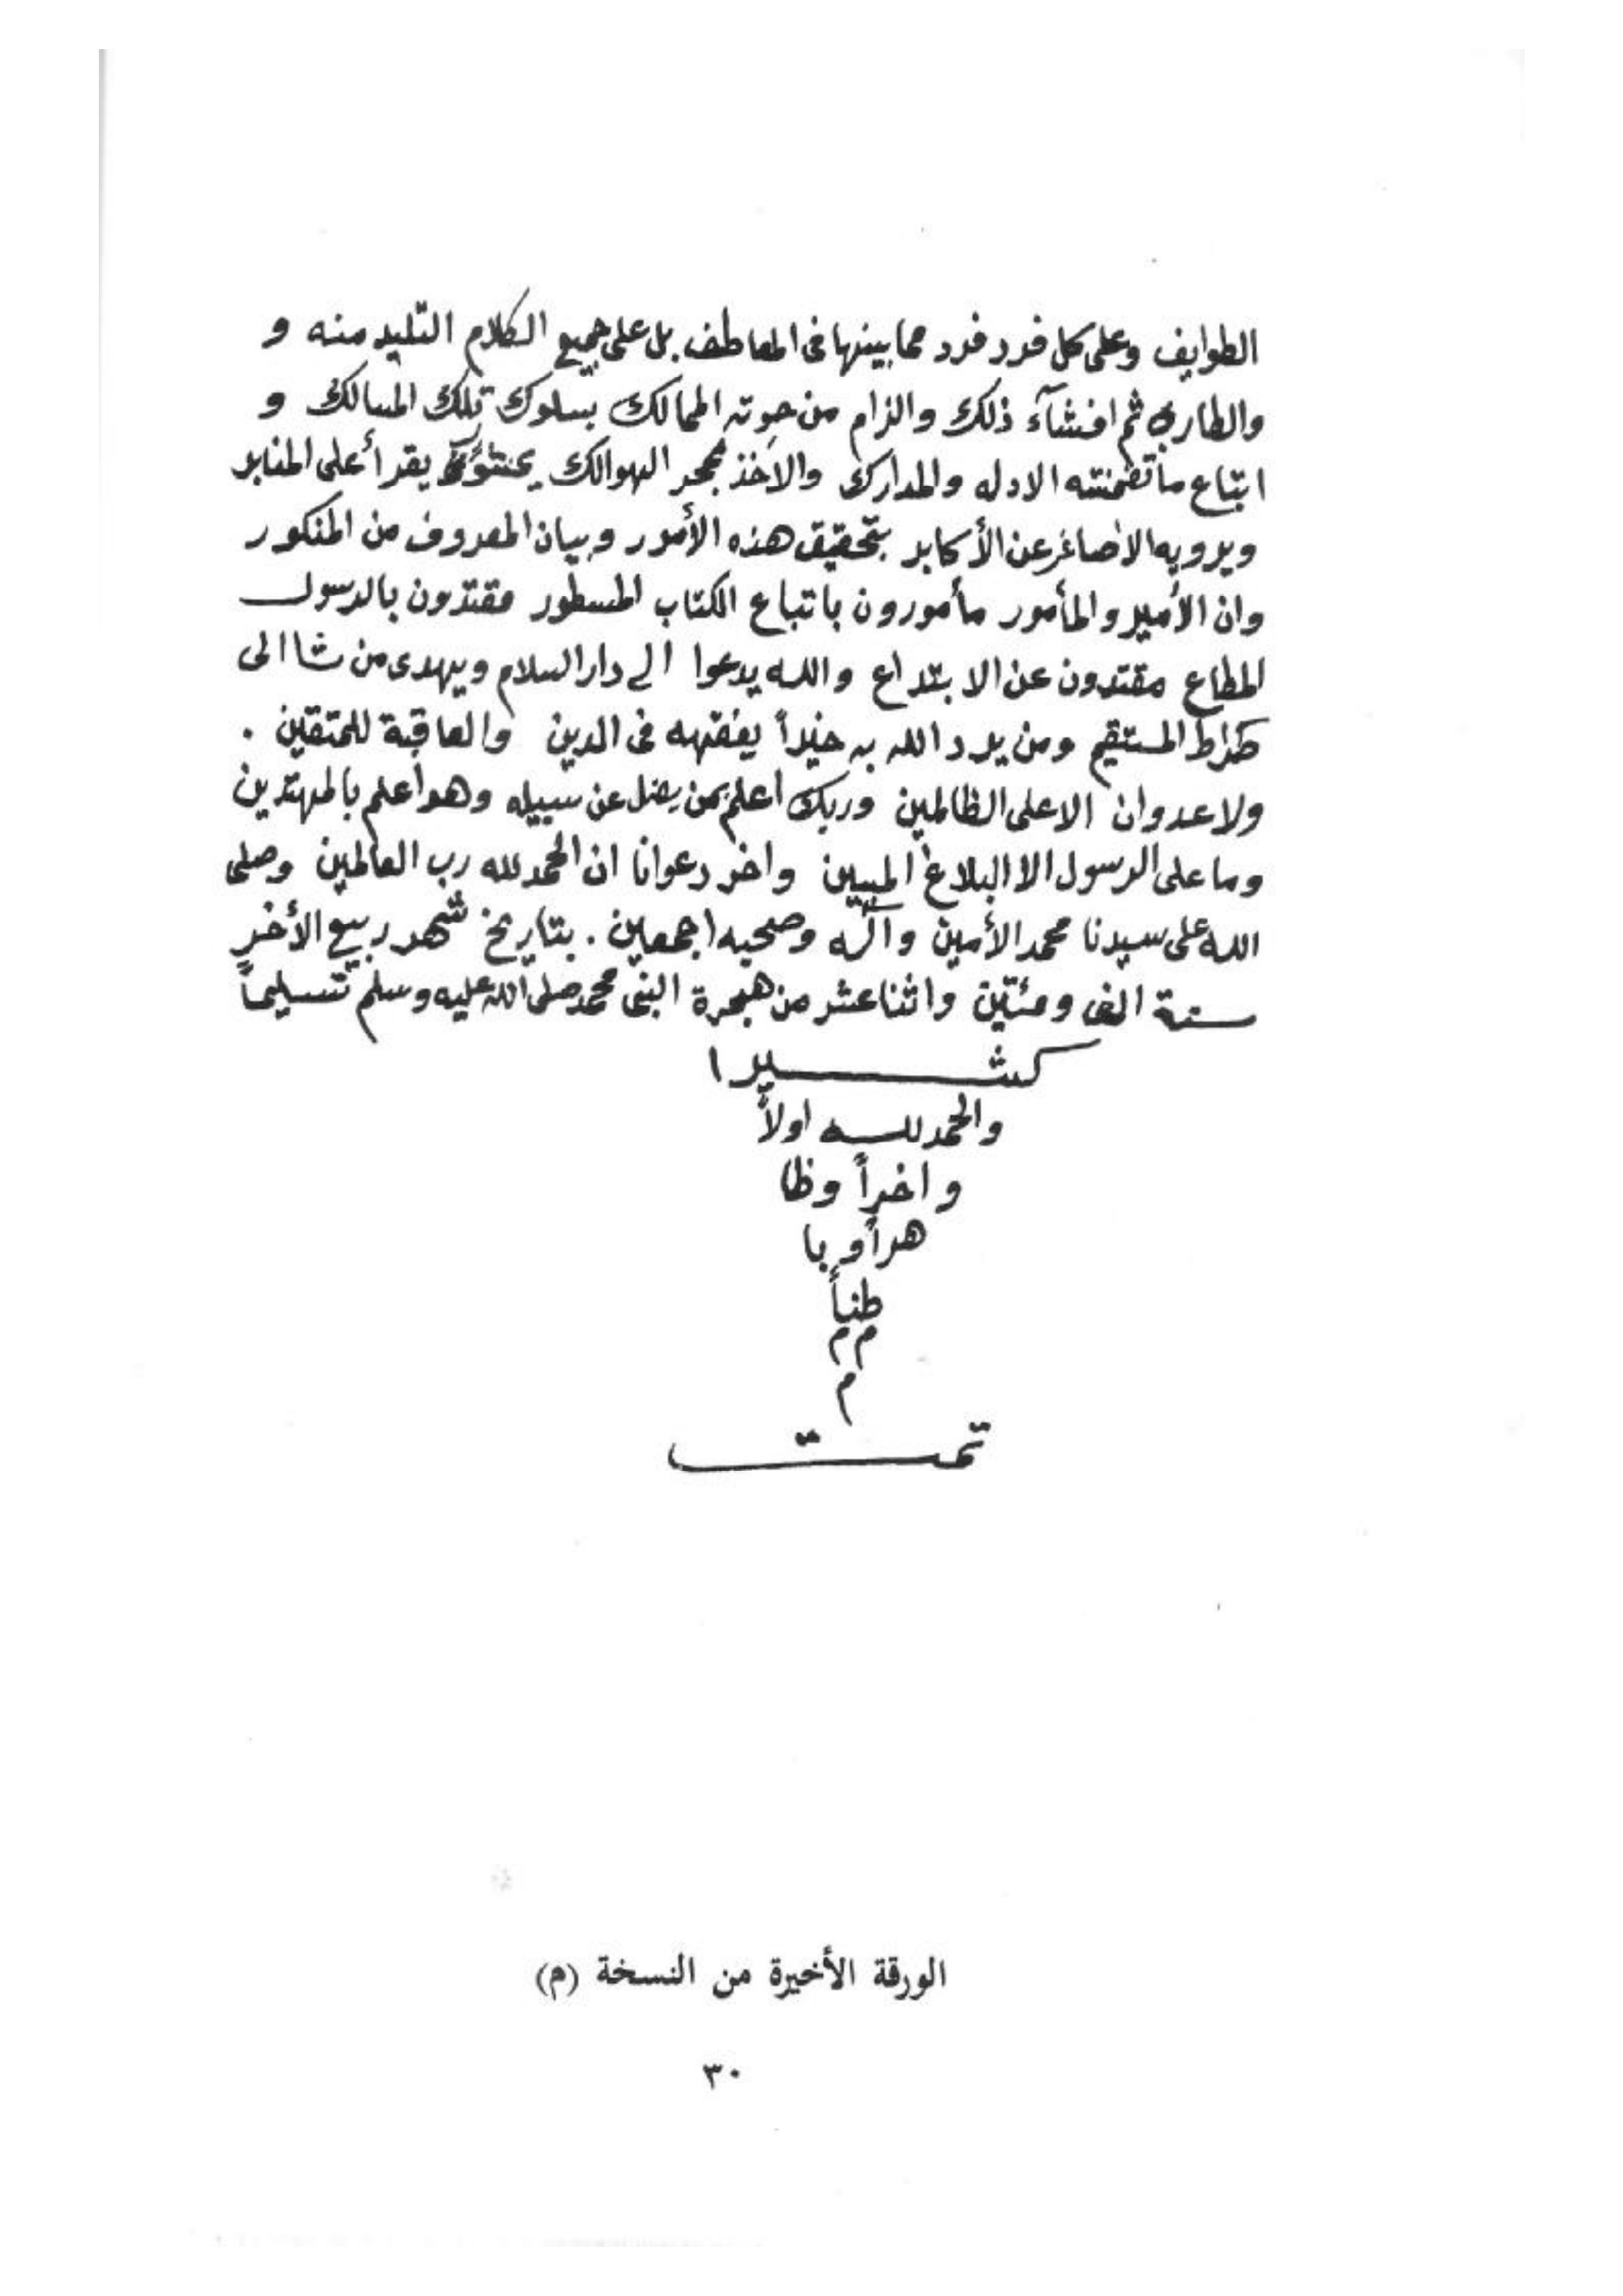 الطوايف وعلى كل فرد فرد مما بينها فى المعاطف بل على جميع الكلام التليد منه و
والطاري ثم افشآء ذلك والزام من حوته الممالك بسلوك تلك المسالك و
اتباع ما تضمنته الادله والمدارك والاخذ بحجر الهوالك يقرأ على المنابر
ويرويه الاصاغر عن الأكابر بتحقيق هذه الأمور وبيان المعروف من المنكور
وان الأمير والمأمور مأمورون باتباع الكتاب المسطور مقتدون بالرسول
المطاع مقتدون عن الابتداع والله يدعوا الى دار السلام ويهدى من شا الى
صراط المستقيم ومن يرد الله به خيراً يفقهه فى الدين والعاقبة للمتقين .
ولا عدوان الا على الظالمين وربك اعلم بمن يضل عن سبيله وهو أعلم بالمهتدين
وما على الرسول الا البلاغ المبين واخر دعوانا ان الحمد لله رب العالمين وصلى
الله على سيدنا محمد الأمين وآله وصحبه اجمعين . بتاريخ شهر ربيع الأخر
سنة الف ومئتين واثنا عشر من هجرة النبى محمد صلى الله عليه وسلم تسليماً
كثيرا
والحمد لله اولاً
واخراً وظا
هراً وبا
طناً
م م
م
تمت
الورقة الأخيرة من النسخة (م)
٣٠